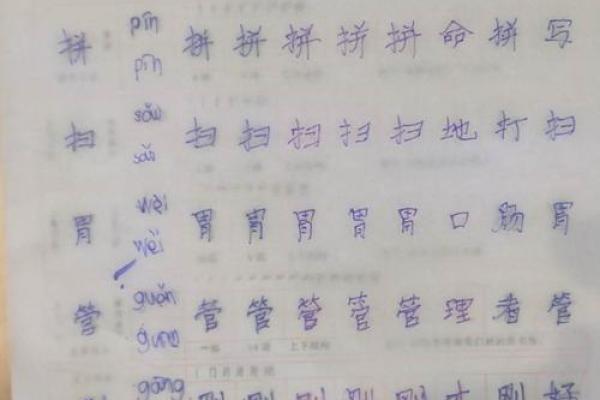 拼 pīn 拼 拼 拼 拼 拼 命 拼 写
pīn
扫 sǎo 扫 扫 扫 扫 扫 地 打 扫
胃 wèi 胃 胃 胃 胃 胃 口 肠 胃
wèi
管 guǎn 管 管 管 管 管 理 者 管
gāng 刚 刚 刚 刚 刚 才 刚 好